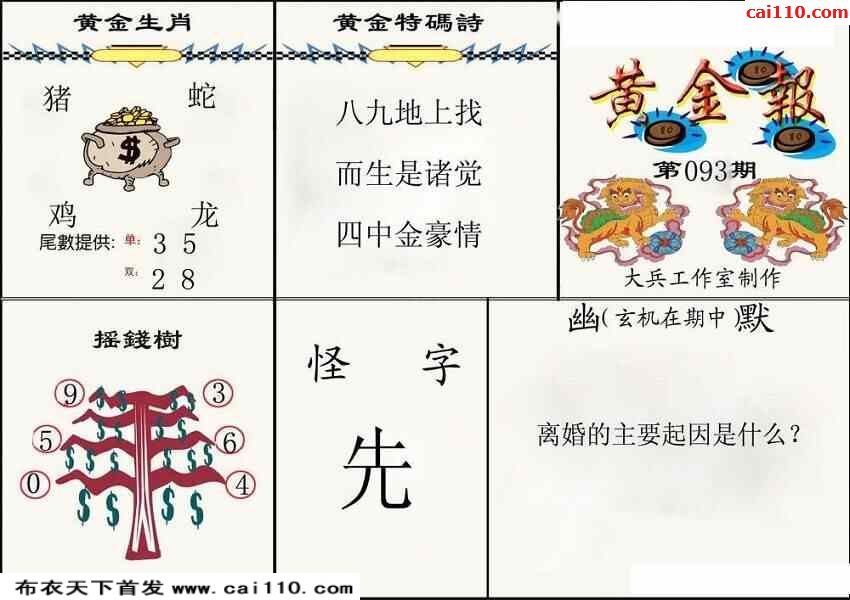 cai110.com
黄金生肖
猪 蛇
$
鸡 龙
尾數提供: 单: 3 5
双: 2 8
黄金特碼詩
八九地上找
而生是诸觉
四中金豪情
黄金報
10
10
10
第093期
大兵工作室制作
摇錢樹
9 3
5 6
0 4
$ $ $ $
$ $ $ $
$ $ $ $
$ $ $ $
怪 字
先
幽(玄机在期中)默
离婚的主要起因是什么?
布衣天下首发 www.cai110.com